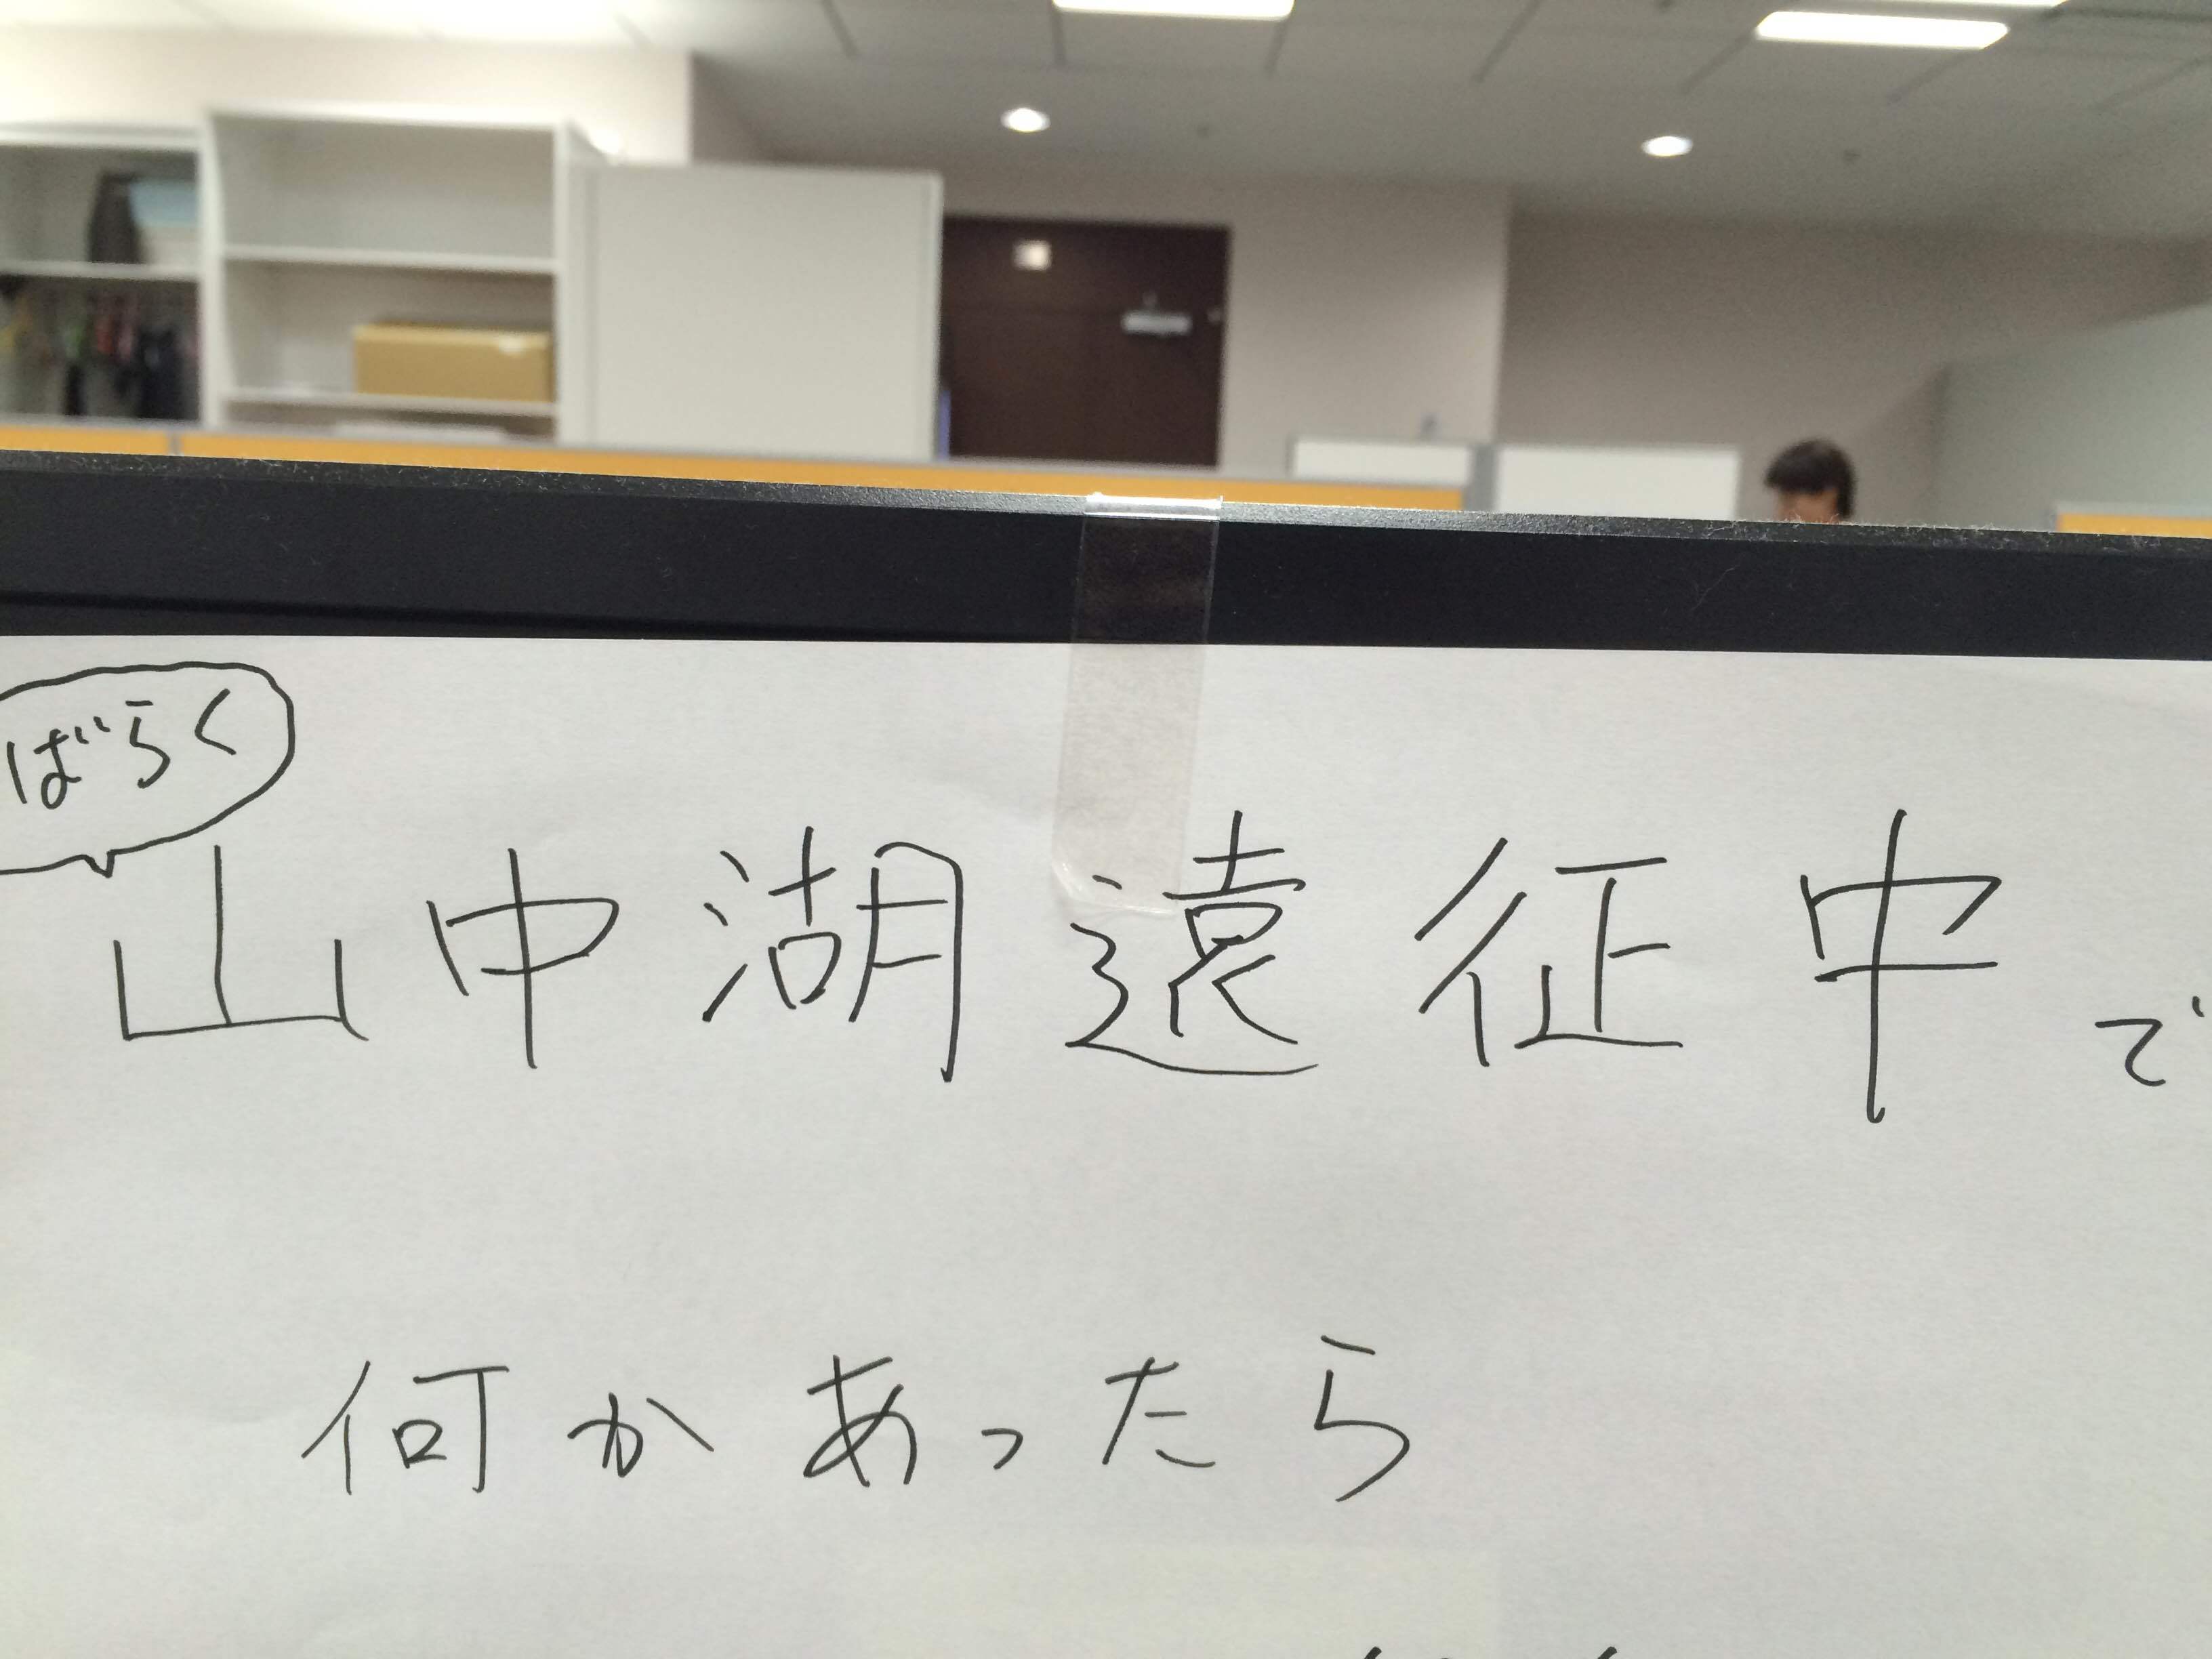 ばらく
山中湖遠征中で
何かあったら